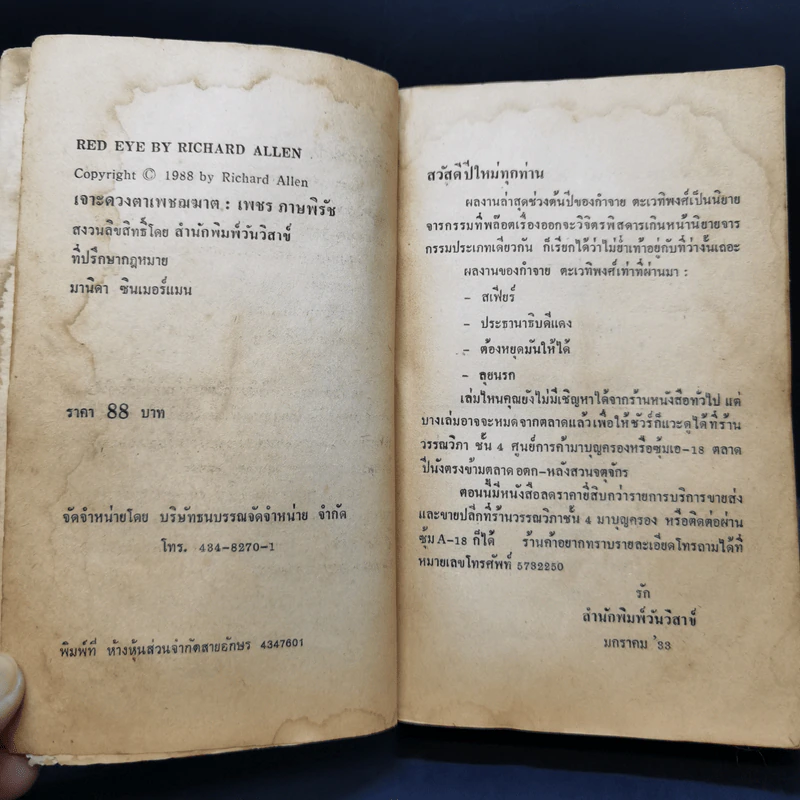 RED EYE BY RICHARD ALLEN
Copyright © 1988 by Richard Allen
เจาะดวงตาเพชฌฆาต : เพชร ภาษพิรัช
สงวนลิขสิทธิ์โดย สำนักพิมพ์วันวิสาข์
ที่ปรึกษากฎหมาย
มานิดา ซินเมอร์แมน
ราคา 88 บาท
จัดจำหน่ายโดย บริษัทธนบรรณจัดจำหน่าย จำกัด
โทร. 434-8270-1
พิมพ์ที่ ห้างหุ้นส่วนจำกัดสายอักษร 4347601
สวัสดีปีใหม่ทุกท่าน
ผลงานล่าสุดช่วงต้นปีของกำจาย ตะเวทิพงศ์เป็นนิยาย
จารกรรมที่พล๊อตเรื่องออกจะวิจิตรพิสดารเกินหน้านิยายจาร
กรรมประเภทเดียวกัน ก็เรียกได้ว่าไม่ย่ำเท้าอยู่กับที่ว่างั้นเถอะ
ผลงานของกำจาย ตะเวทิพงศ์เท่าที่ผ่านมา :
– สเฟียร์
– ประธานาธิบดีแดง
– ต้องหยุดมันให้ได้
– ลุยนรก
เล่มไหนคุณยังไม่มีเชิญหาได้จากร้านหนังสือทั่วไป แต่
บางเล่มอาจจะหมดจากตลาดแล้วเพื่อให้ชัวร์ก็แวะดูได้ที่ร้าน
วรรณวิภา ชั้น 4 ศูนย์การค้ามาบุญครองหรือซุ้มเอ-18 ตลาด
ปีนังตรงข้ามตลาด อตก-หลังสวนจตุจักร
ตอนนี้มีหนังสือลดราคายี่สิบกว่ารายการบริการขายส่ง
และขายปลีกที่ร้านวรรณวิภาชั้น 4 มาบุญครอง หรือติดต่อผ่าน
ซุ้ม A-18 ก็ได้ ร้านค้าอยากทราบรายละเอียดโทรถามได้ที่
หมายเลขโทรศัพท์ 5732250
รัก
สำนักพิมพ์วันวิสาข์
มกราคม '33